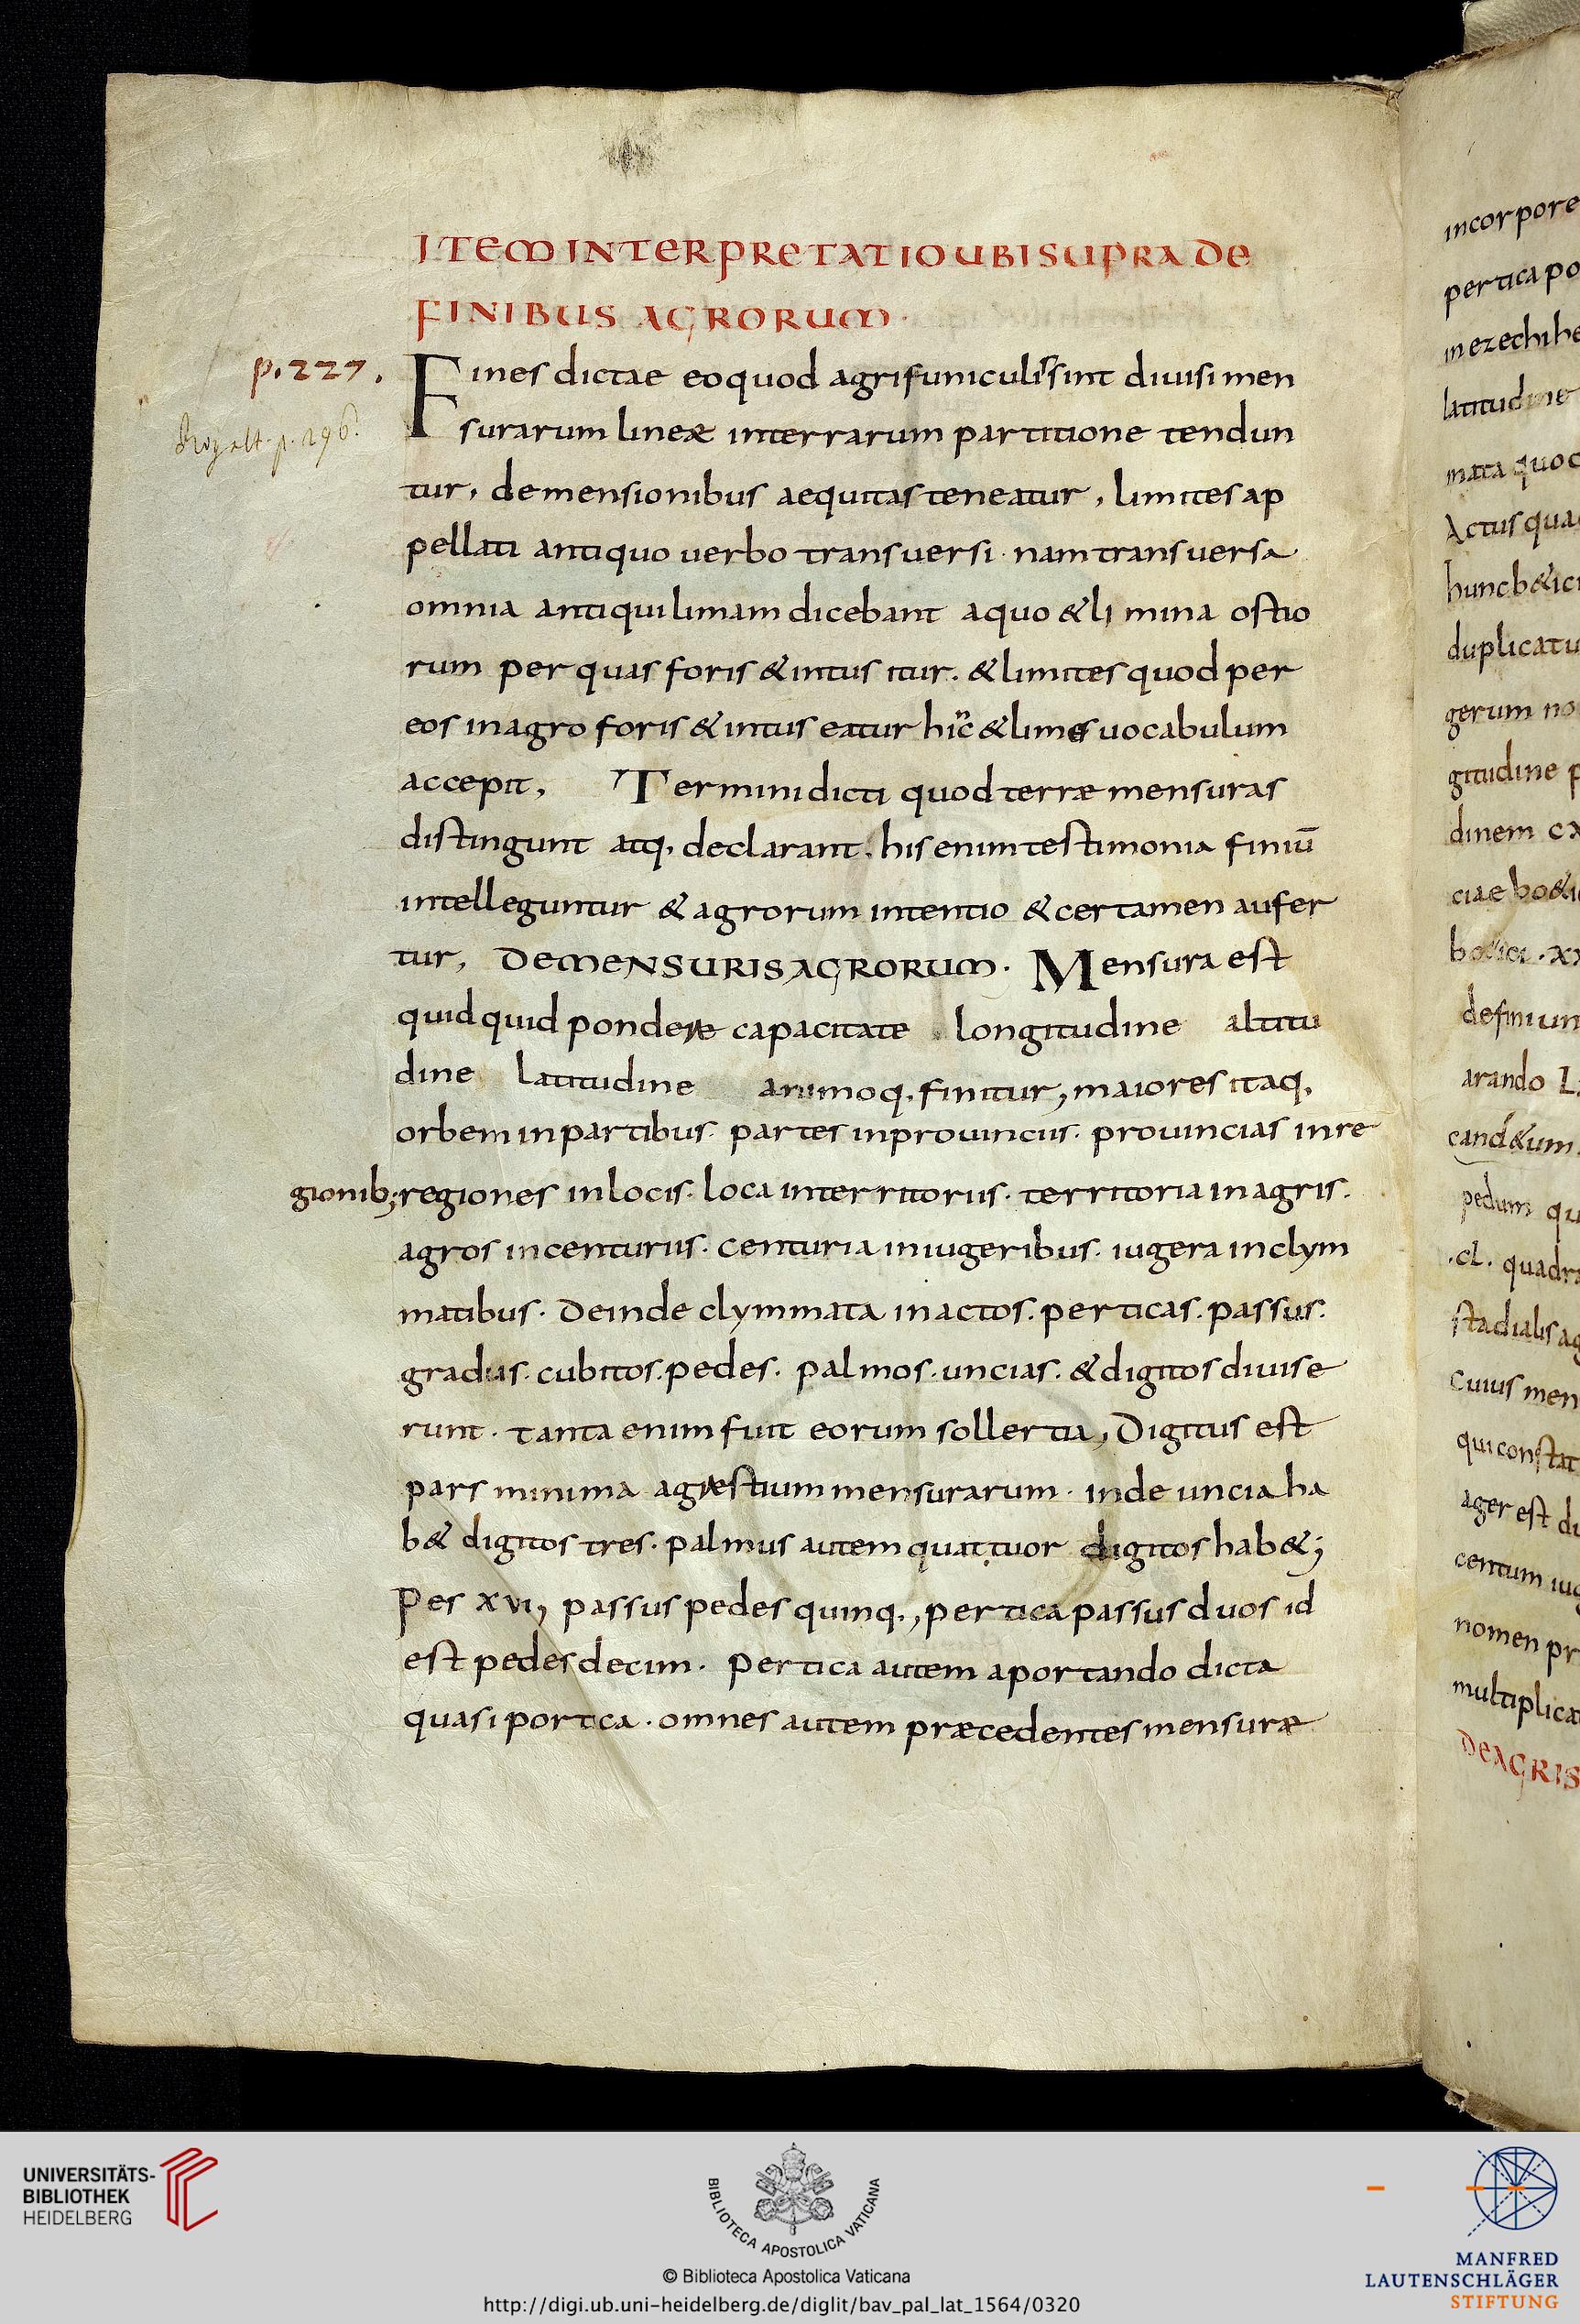 ITEM INTERPRETATIO UBI SUPRA DE
FINIBUS AGRORUM.
p. 227.
Fines dictae eo quod agri funiculis sint diuisi men
surarum lineæ interrarum partitione tendun
tur, demensionibus aequitas teneatur, limites ap
pellati antiquo uerbo transuersi. nam transuersa
omnia antiqui limam dicebant a quo & limina ostio
rum per quas foris & intus itur. & limites quod per
eos in agro foris & intus eatur hic & limes uocabulum
accepit, Termini dicti quod terræ mensuras
distingunt atq. declarant. his enim testimonia finiū
intelleguntur & agrorum intentio & certamen aufer
tur, DE MENSURIS AGRORUM. Mensura est
quidquid pondere capacitate longitudine altitu
dine latitudine animoq. finitur, maiores itaq.
orbem in partibus. partes in prouinciis. prouincias in re
gionib; regiones in locis. loca in territoriis. territoria in agris.
agros in centuriis. centuria in iugeribus. iugera in clym
matibus. Deinde clymmata in actos. perticas. passus.
gradus. cubitos. pedes. palmos. uncias. & digitos diuise
runt. tanta enim fuit eorum sollertia, Digitus est
pars minima agræstium mensurarum. inde uncia ha
b& digitos tres. palmus autem quattuor digitos hab&;
Pes xvi, passus pedes quinq., pertica passus duos id
est pedes decim. Pertica autem a portando dicta
quasi portica. omnes autem præcedentes mensuræ
incorpore
pertica po
in ezechihe
latitudine
mata quod
Actus qua
hunc b&ici
duplicatu
gerum no
gitudine p
dinem cx
definiun
arando
cand&um
pedum qu
.cl. quadra
stadialis ag
cuius men
qui constat
ager est du
centum iug
nomen pr
multiplica
DE AGRIS
UNIVERSITÄTS-
BIBLIOTHEK
HEIDELBERG
BIBLIOTECA APOSTOLICA VATICANA
© Biblioteca Apostolica Vaticana
http://digi.ub.uni-heidelberg.de/diglit/bav_pal_lat_1564/0320
MANFRED
LAUTENSCHLÄGER
STIFTUNG